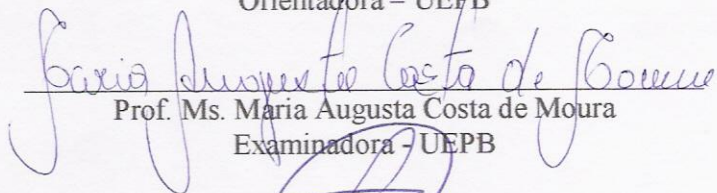 Orientadora – UEPB
Maria Augusta Costa de Moura
Prof. Ms. Maria Augusta Costa de Moura
Examinadora - UEPB